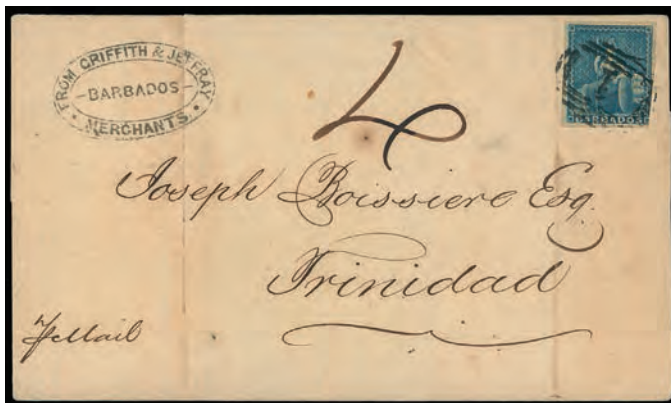 FROM GRIFFITH & JEFFRAY
- BARBADOS -
• MERCHANTS •
4
BARBADOS
Joseph Boissiere Esq.
Trinidad
Mail